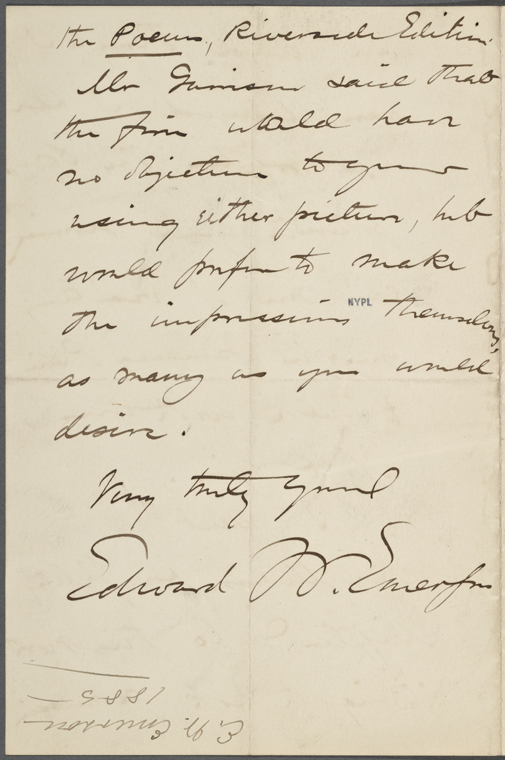 the Poems, Riverside Edition.
Mr Garrison said that
the firm would have
no objection to your
using either picture, but
would prefer to make
the impressions themselves,
as many as you would
desire.
Very truly yours
Edward W. Emerson
NYPL
E. W. Emerson
1885